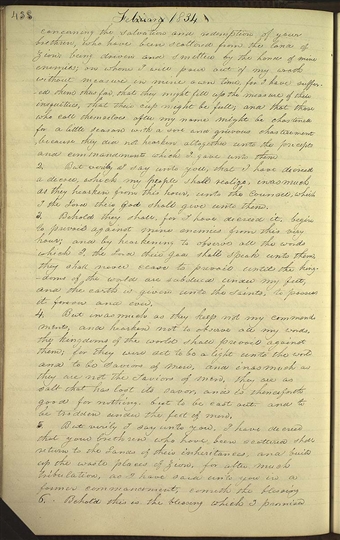 488 February 1834
concerning the salvation and redemption of your
brethren, who have been scattered from the land of
Zion being driven and smitten by the hands of mine
enemies; on whom I will pour out my wrath
without measure in mine own time, for I have suffer-
ed them thus far, that they might fill up the measure of their
iniquities, that their cup might be full; and that those
who call themselves after my name might be chastened
for a little season with a sore and grievous chastisement
because they did not hearken altogether unto the precepts
and commandments which I gave unto them
2. But verily I say unto you, that I have decreed
a decree, which my people shall realize, inasmuch
as they hearken from this hour, unto the counsel, which
I the Lord their god shall give unto them.
3. Behold they shall, for I have decreed it, begin
to prevail against mine enemies from this very
hour, and by hearkening to observe all the words
which I the Lord their god shall speak unto them,
they shall never cease to prevail until the king-
doms of the world are subdued under my feet,
and the earth is given unto the Saints, to possess
it forever and ever.
4. But inasmuch as they keep not my command
ments, and hearken not to observe all my words,
the kingdoms of the world shall prevail against
them; for they were set to be a light unto the world
and to be Saviors of men, and inasmuch as
they are not the Saviors of men, they are as
salt that has lost its savor, and is thenceforth
good for nothing but to be cast out and to
be trodden under the feet of men.
5 But verily I say unto you, I have decreed
that your brethren who have been scattered shall
return to the lands of their inheritances, and build
up the waste places of Zion, for after much
tribulation, as I have said unto you in a
former commandment, cometh the blessing
6. Behold this is the blessing which I promised